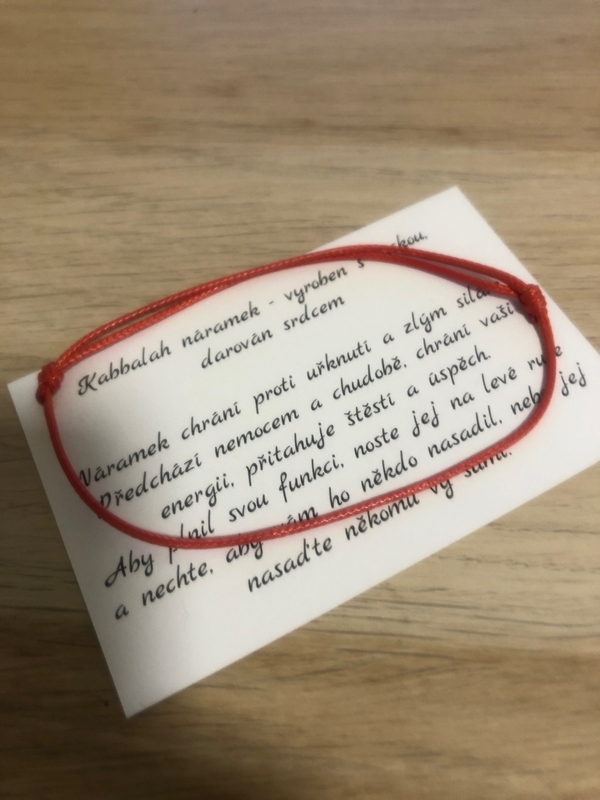 Kabbalah náramek - vyroben s
darován srdcem
Náramek chrání proti uřknutí a zlým
Předchází nemocem a chudobě, chrání vaši
energii, přitahuje štěstí a úspěch.
Aby plnil svou funkci, noste jej na levé ruce
a nechte, aby vám ho někdo nasadil, nebo jej
nasaďte někomu vy sami.